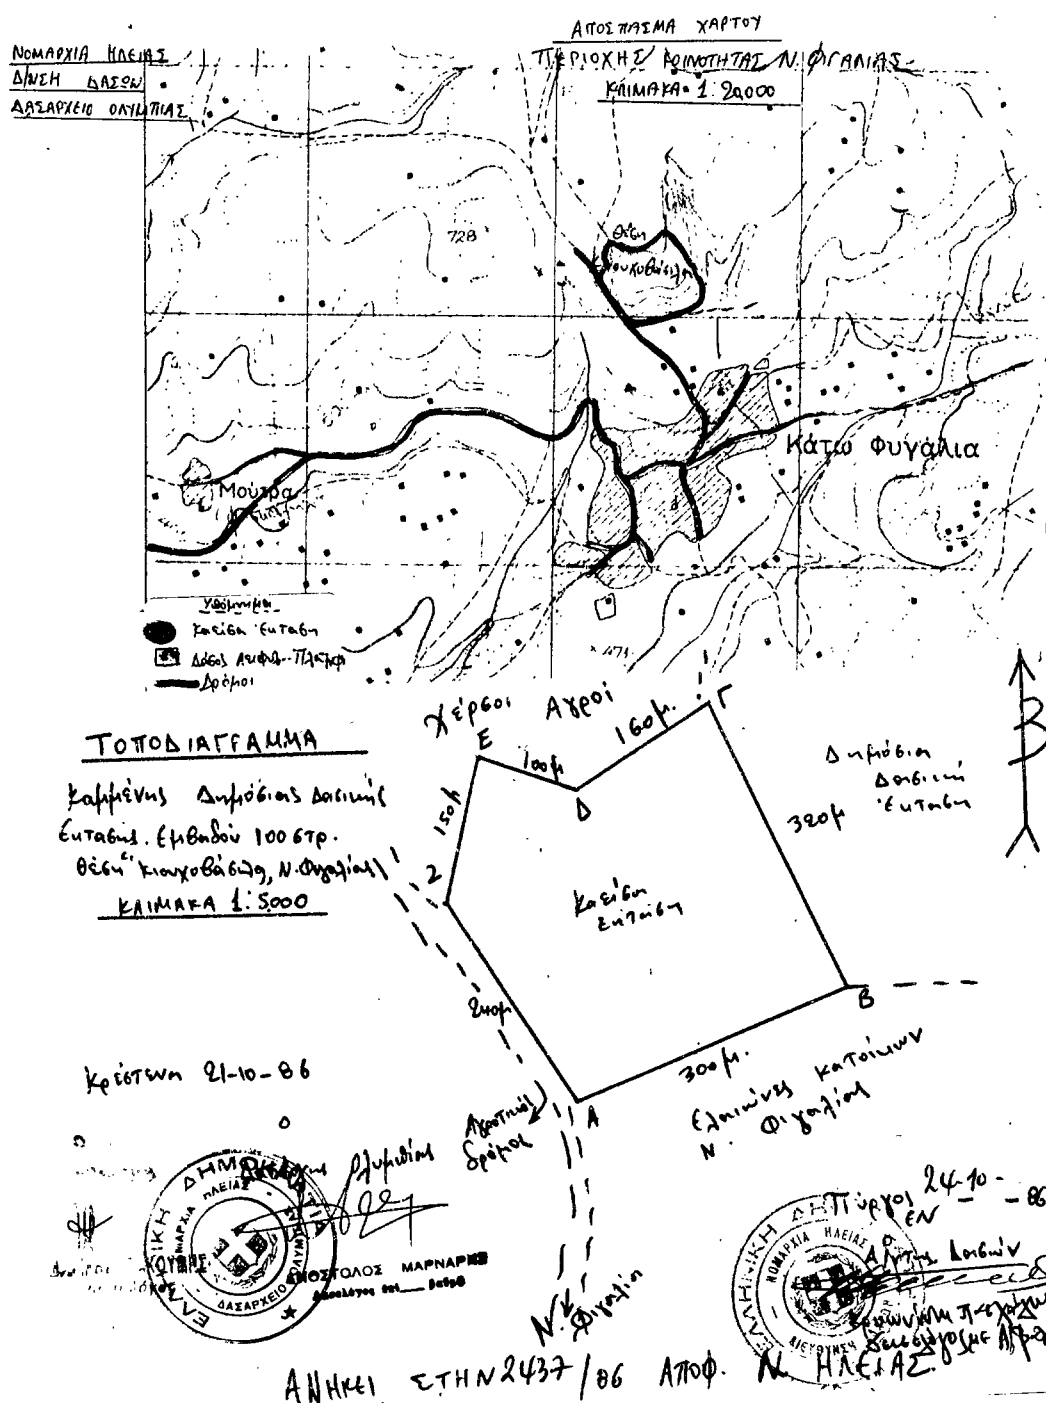 ΝΟΜΑΡΧΙΑ ΗΛΕΙΑΣ
Δ/ΝΣΗ ΔΑΣΩΝ
ΔΑΣΑΡΧΕΙΟ ΟΛΥΜΠΙΑΣ
ΑΠΟΣΠΑΣΜΑ ΧΑΡΤΟΥ
ΠΕΡΙΟΧΗΣ ΚΟΙΝΟΤΗΤΑΣ Ν. ΦΙΓΑΛΙΑΣ
ΚΛΙΜΑΚΑ 1:20000
728
Θέση
Κάτω Φυγάλια
Μούτρα
Υπόμνημα
Καείσα Έκταση
Δάσος
Δρόμοι
ΤΟΠΟΔΙΑΓΡΑΜΜΑ
Καμμένης Δημόσιας Δασικής
Έκτασης. Εμβαδού 100 στρ.
Θέση Κιουχοβάσιλα, Ν. Φιγαλίας
ΚΛΙΜΑΚΑ 1:5000
Χέρσοι Αγροί
Ε
100μ
Δ
160μ.
Γ
150μ
Ζ
320μ
Δημόσια
Δασική
Έκταση
Β
Καείσα
Έκταση
240μ
300μ.
Β
Α
Ελαιώνες κατοίκων
Ν. Φιγαλίας
Αγροτικός
δρόμος
Ν. Φιγαλία
Κρέστενα 21-10-86
Ολυμπίας
ΕΛΛΗΝΙΚΗ ΔΗΜΟΚΡΑΤΙΑ
ΝΟΜΑΡΧΙΑ ΗΛΕΙΑΣ
ΔΑΣΑΡΧΕΙΟ
ΑΠΟΣΤΟΛΟΣ ΜΑΡΝΑΡΗΣ
Πύργος 24-10-86
Ο Δ/ντης Δασών
ΝΟΜΑΡΧΙΑ ΗΛΕΙΑΣ
ΑΝΗΚΕΙ ΣΤΗΝ 2437/86 ΑΠΟΦ. Ν. ΗΛΕΙΑΣ.